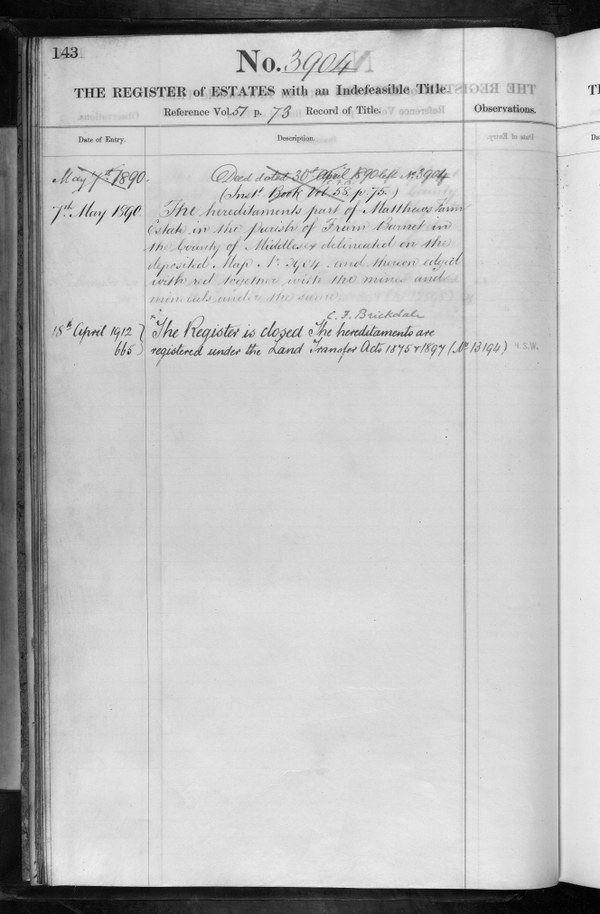 143
No. 3904
THE REGISTER of ESTATES with an Indefeasible Title.
Reference Vol. 51 p. 73 Record of Title.
Observations.
Date of Entry.
Description.
May 7th 1890. Deed dated 30th April 1890 left No 3904
(Inst. Book Vol. 55 p. 75.)
7th May 1890. The hereditaments part of Matthews Farm
Estate in the parish of Friern Barnet in
the County of Middlesex delineated on the
deposited Map No. 3904 and thereon edged
with red together with the mines and
minerals under the same
C. F. Brickdale
18th April 1912 } The Register is closed The hereditaments are
665 } registered under the Land Transfer Acts 1875 & 1897 (No. 13194)